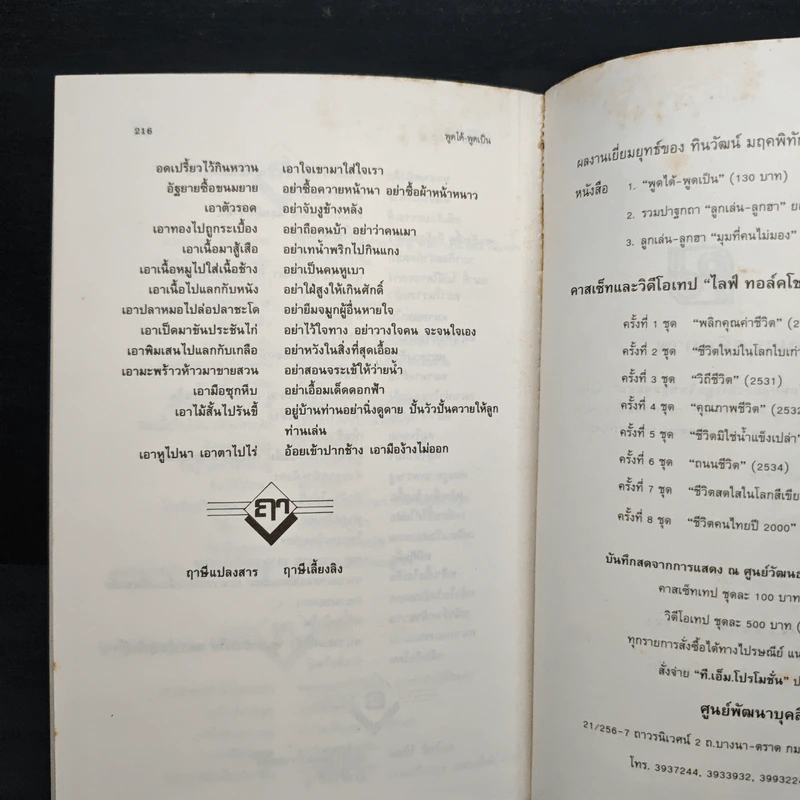 216
พูดได้-พูดเป็น
อดเปรี้ยวไว้กินหวาน เอาใจเขามาใส่ใจเรา
อัฐยายซื้อขนมยาย อย่าซื้อควายหน้านา อย่าซื้อผ้าหน้าหนาว
เอาตัวรอด อย่าจับงูข้างหลัง
เอาทองไปถูกระเบื้อง อย่าถือคนบ้า อย่าว่าคนเมา
เอาเนื้อมาสู้เสือ อย่าเทน้ำพริกไปกินแกง
เอาเนื้อหมูไปใส่เนื้อช้าง อย่าเป็นคนหูเบา
เอาเนื้อไปแลกกับหนัง อย่าใฝ่สูงให้เกินศักดิ์
เอาปลาหมอไปล่อปลาชะโด อย่ายืมจมูกผู้อื่นหายใจ
เอาเป็ดมาขันประชันไก่ อย่าไว้ใจทาง อย่าวางใจคน จะจนใจเอง
เอาพิมเสนไปแลกกับเกลือ อย่าหวังในสิ่งที่สุดเอื้อม
เอามะพร้าวห้าวมาขายสวน อย่าสอนจระเข้ให้ว่ายน้ำ
เอามือซุกหีบ อย่าเอื้อมเด็ดดอกฟ้า
เอาไม้สั้นไปรันขี้ อยู่บ้านท่านอย่านิ่งดูดาย ปั้นวัวปั้นควายให้ลูก
ท่านเล่น
เอาหูไปนา เอาตาไปไร่ อ้อยเข้าปากช้าง เอามือง้างไม่ออก
ฤๅ
ฤๅษีแปลงสาร ฤๅษีเลี้ยงลิง
ผลงานเยี่ยมยุทธ์ของ ทินวัฒน์ มฤคพิทัก
หนังสือ 1. "พูดได้-พูดเป็น" (130 บาท)
2. รวมปาฐกถา "ลูกเล่น-ลูกฮา"
3. ลูกเล่น-ลูกฮา "มุมที่คนไม่มอง"
คาสเซ็ทและวิดีโอเทป "ไลฟ์ ทอล์คโช
ครั้งที่ 1 ชุด "พลิกคุณค่าชีวิต" (2
ครั้งที่ 2 ชุด "ชีวิตใหม่ในโลกใบเก่า
ครั้งที่ 3 ชุด "วิถีชีวิต" (2531)
ครั้งที่ 4 ชุด "คุณภาพชีวิต" (2532
ครั้งที่ 5 ชุด "ชีวิตมิใช่น้ำแข็งเปล่า"
ครั้งที่ 6 ชุด "ถนนชีวิต" (2534)
ครั้งที่ 7 ชุด "ชีวิตสดใสในโลกสีเขีย
ครั้งที่ 8 ชุด "ชีวิตคนไทยปี 2000"
บันทึกสดจากการแสดง ณ ศูนย์วัฒนธ
คาสเซ็ทเทป ชุดละ 100 บาท
วิดีโอเทป ชุดละ 500 บาท (
ทุกรายการสั่งซื้อได้ทางไปรษณีย์
สั่งจ่าย "ที.เอ็ม.โปรโมชั่น"
ศูนย์พัฒนาบุคลิ
21/256-7 ถาวรนิเวศน์ 2 ถ.บางนา-ตราด กม
โทร. 3937244, 3933932, 3993224